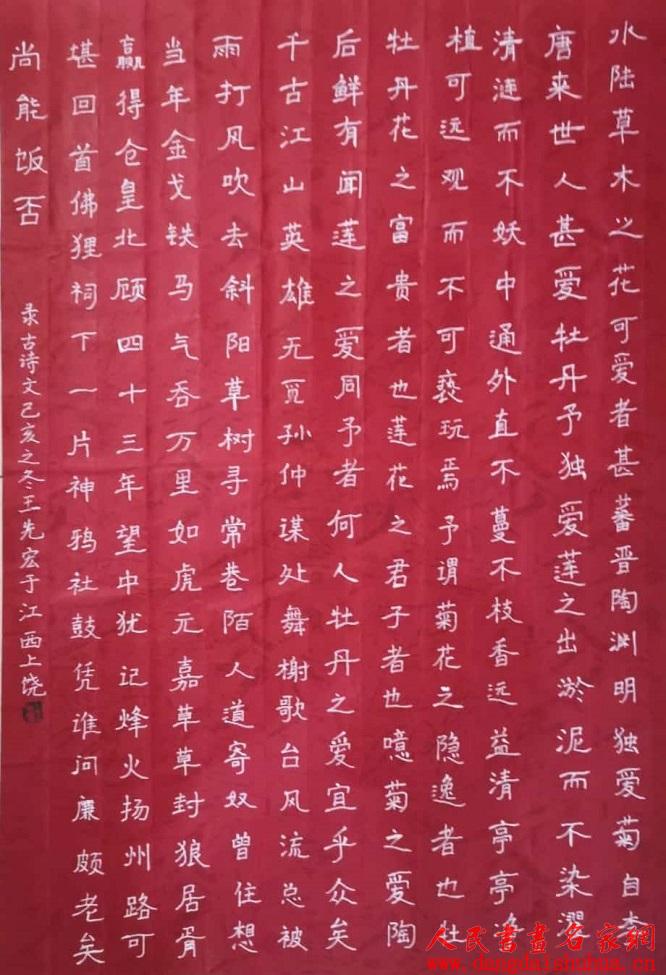 水陆草木之花可爱者甚蕃晋陶渊明独爱菊自李
唐来世人甚爱牡丹予独爱莲之出淤泥而不染濯
清涟而不妖中通外直不蔓不枝香远益清亭亭净
植可远观而不可亵玩焉予谓菊花之隐逸者也牡
牡丹花之富贵者也莲花之君子者也噫菊之爱陶
后鲜有闻莲之爱同予者何人牡丹之爱宜乎众矣
千古江山英雄无觅孙仲谋处舞榭歌台风流总被
雨打风吹去斜阳草树寻常巷陌人道寄奴曾住想
当年金戈铁马气吞万里如虎元嘉草草封狼居胥
赢得仓皇北顾四十三年望中犹记烽火扬州路可
堪回首佛狸祠下一片神鸦社鼓凭谁问廉颇老矣
尚能饭否
录古诗文己亥之冬王先宏于江西上饶
人民書畫名家網
www.dangdaishuhua.com